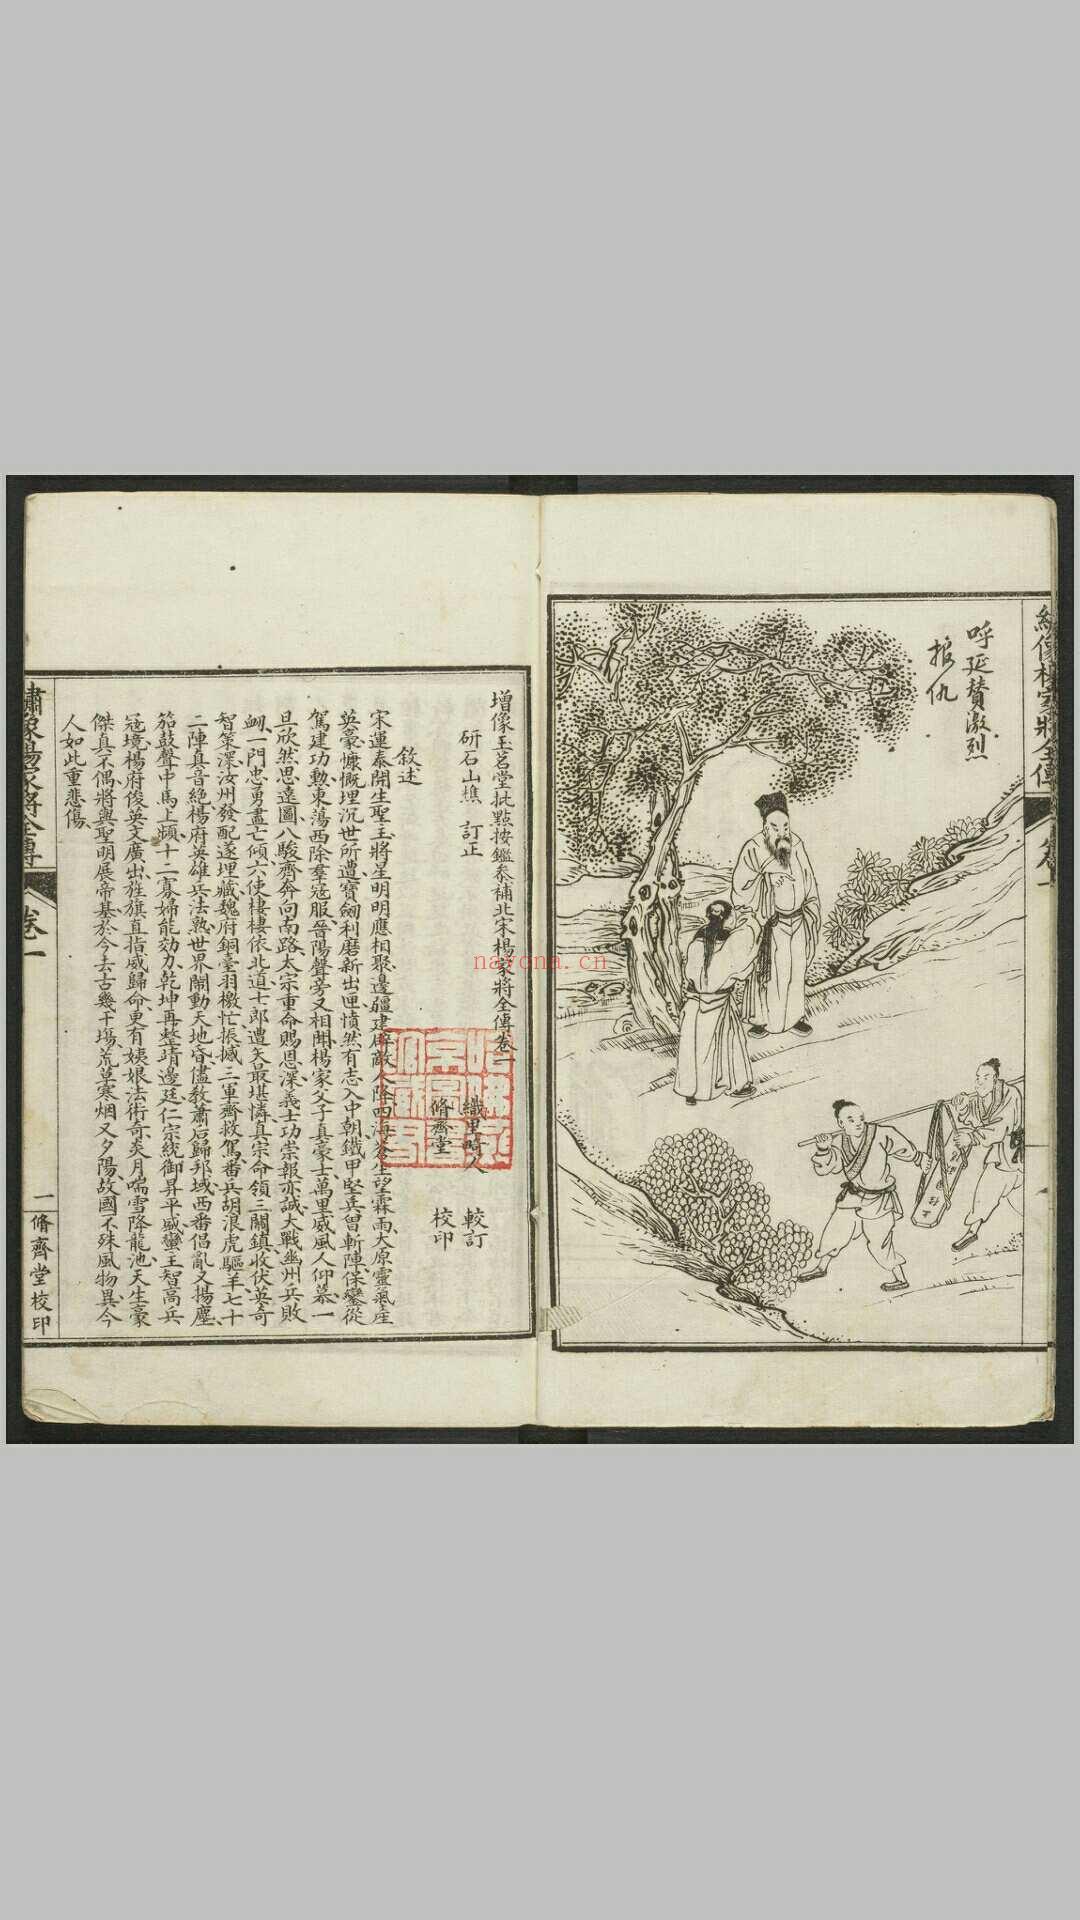 呼延贊激烈
報仇
增像玉茗堂批點按鑑叅補北宋楊家將全傳卷一
研石山樵 訂正
織里畸人 較訂
脩齊堂 校印
敘述
宋運泰開生聖王、將星明明應相聚、邊疆建 敵人降、四海蒼生望霖雨、大原靈氣産
英豪、慷慨埋沉世所遭、寶劒利磨新出匣、憤然有志入中朝、鐵甲堅兵曾斬陣、保鑾從
駕建功勳、東蕩西除羣寇服、晉陽聲旁又相聞、楊家父子真豪士、萬里威風人仰慕、一
旦欣然思遠圖、八駿齊奔向南路、太宗重命賜恩深、義士功崇報亦誠、大戰幽州兵敗
衂、一門忠勇盡亡傾、六使棲棲依北道、七郎遭矢最堪憐、真宗命領三關鎮、收伏英奇
智策深、汝州發配遂埋藏、魏府銅臺羽檄忙、振撼三軍齊救駕、番兵胡浪虎驅羊、七十
二陣真音絕、楊府英雄兵法熟、世界鬧動天地昏、儘教蕭后歸邦域、西番倡亂又揚塵、
笳鼓聲中馬上頻、十二寡婦能効力、乾坤再整靖邊廷、仁宗統御昇平盛、蠻王智高兵
寇境、楊府俊英文廣出、旌旗直指威歸命、更有姨娘法術奇、炎月喘雪降龍池、天生豪
傑真不偶、將與聖明展帝基、於今去古幾千塲、荒草寒烟又夕陽、故國不殊風物異、今
人如此重悲傷、
繡像楊家將全傳 卷一 一 脩齊堂校印
nayona.cn